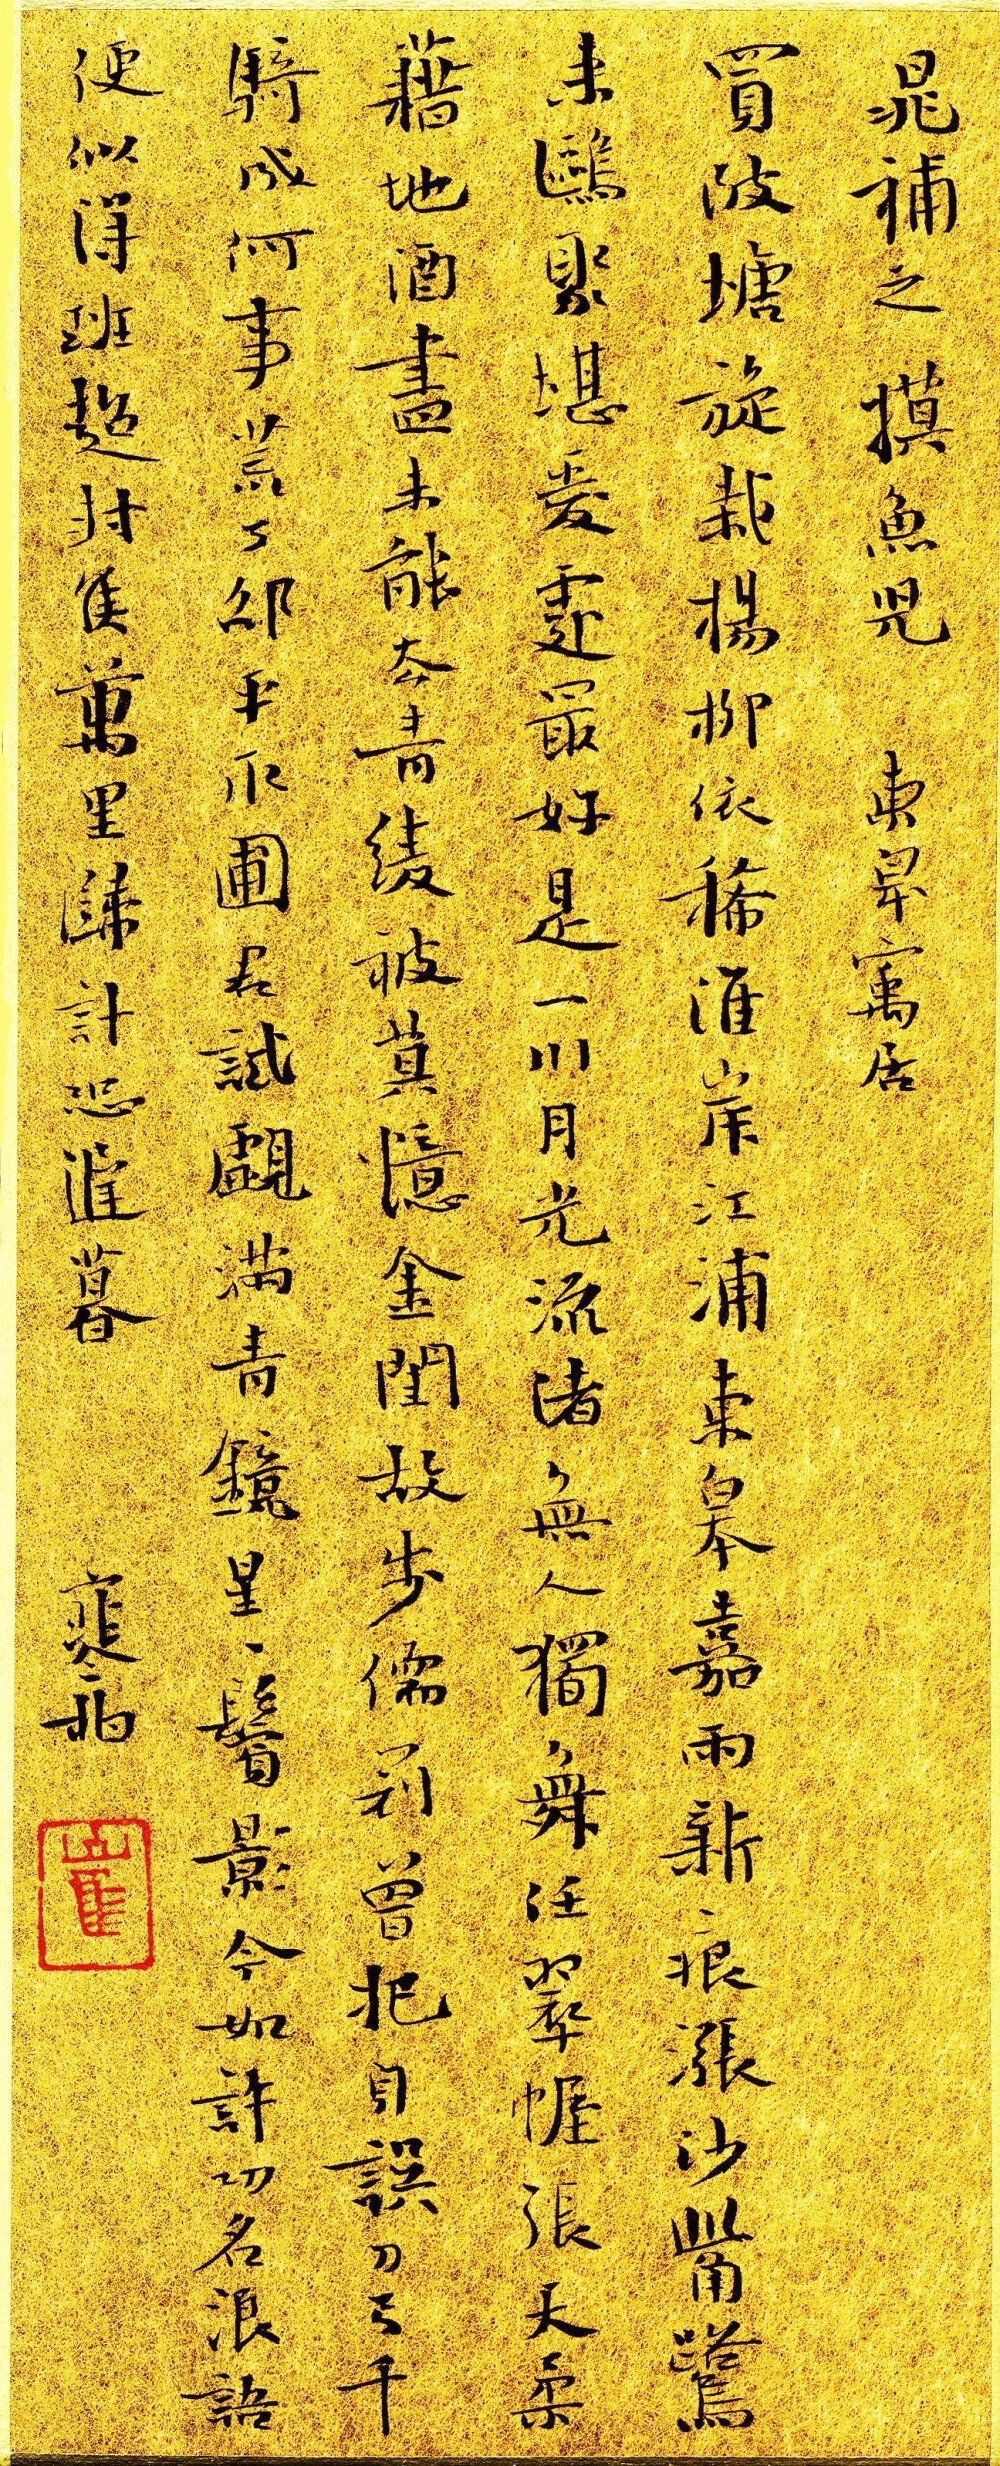 晁補之 摸魚兒 東皐寓居
買陂塘旋栽楊柳依稀淮岸江浦東皋嘉雨新痕漲沙觜鷺
來鷗聚堪愛處最好是一川月光流渚無人獨舞任翠幄張天柔
藉地酒盡未能去青綾被莫憶金閨故步儒冠曾把身誤刀弓千
騎成何事荒了邵平瓜圃君試覷滿青鏡星、鬢影今如許功名浪語
便似得班超封侯萬里歸計恐遲暮